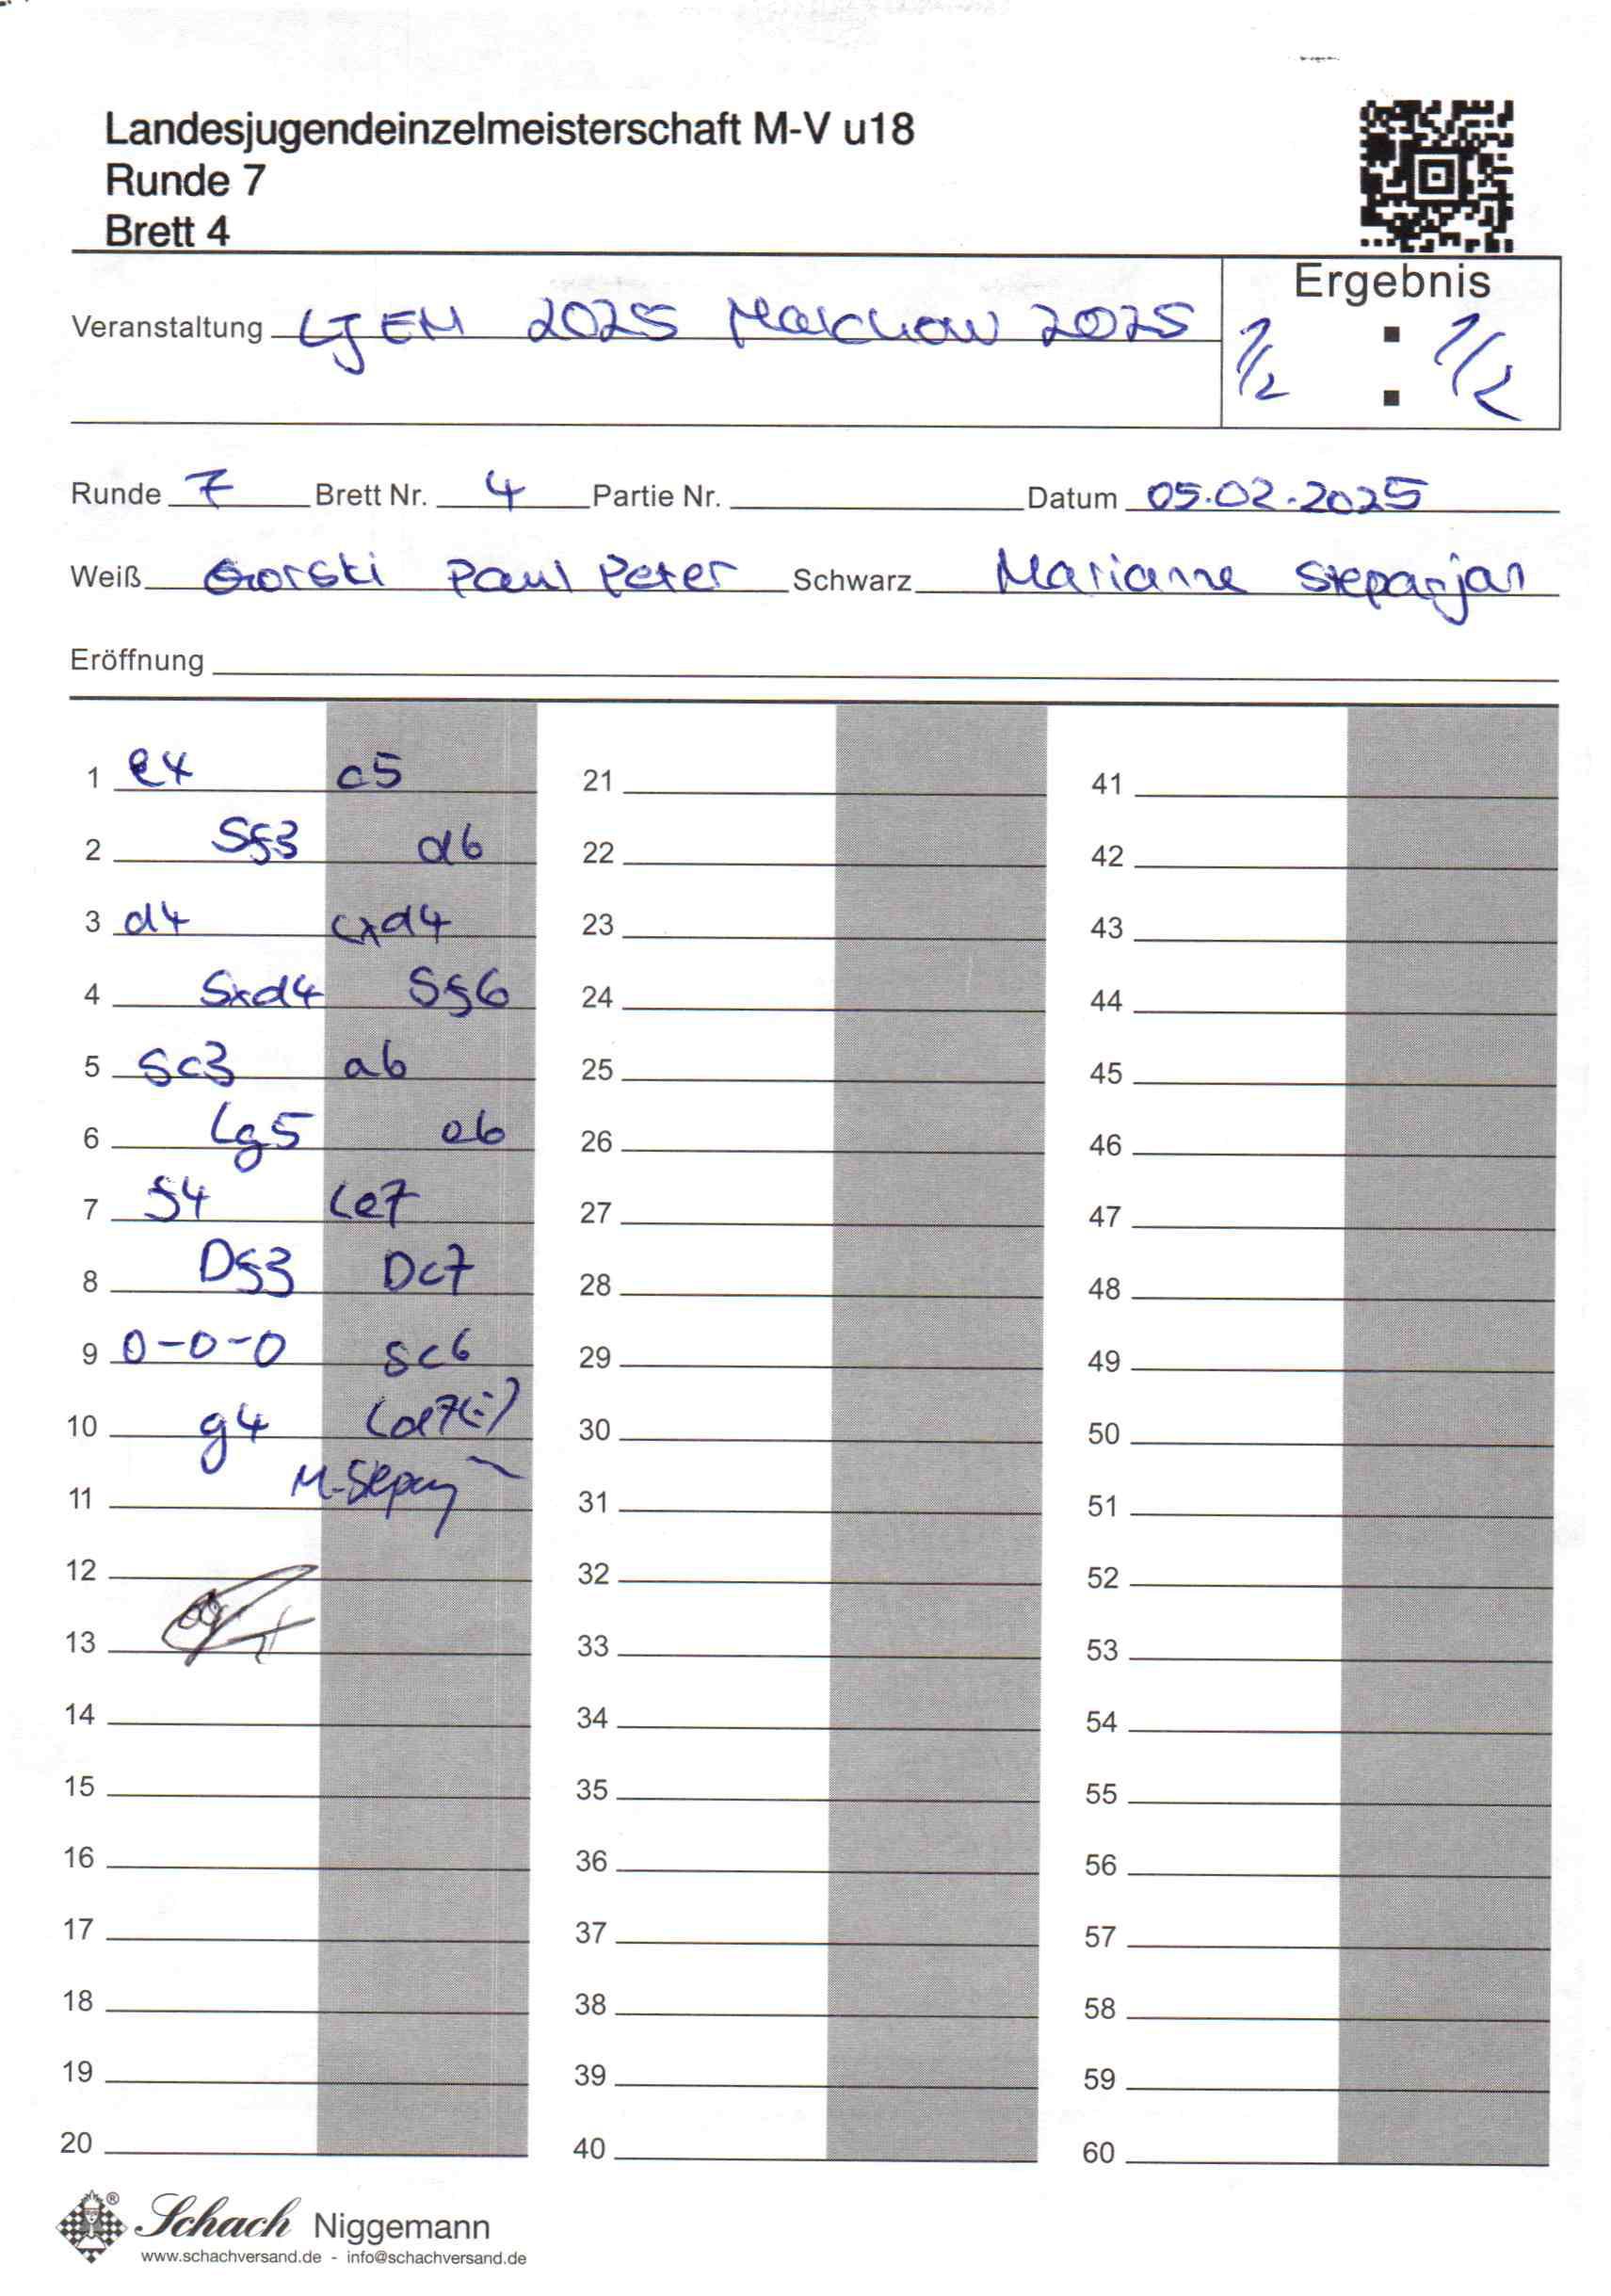 Landesjugendeinzelmeisterschaft M-V u18
Runde 7
Brett 4
Ergebnis
Veranstaltung LJEM 2025 Malchow 2025
1/2 : 1/2
Runde 7 Brett Nr. 4 Partie Nr. Datum 05.02.2025
Weiß Gorski Paul Peter Schwarz Marianna Stepanjan
Eröffnung
1 e4 c5 21 41
2 Sf3 d6 22 42
3 d4 cxd4 23 43
4 Sxd4 Sf6 24 44
5 Sc3 a6 25 45
6 Lg5 e6 26 46
7 f4 Le7 27 47
8 Df3 Dc7 28 48
9 0-0-0 Sc6 29 49
10 g4 Ld7(=) 30 50
11 M. Stepanj 31 51
12 32 52
13 33 53
14 34 54
15 35 55
16 36 56
17 37 57
18 38 58
19 39 59
20 40 60
® Schach Niggemann
www.schachversand.de - info@schachversand.de